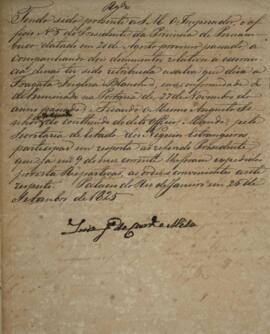 Tendo sido presente a S. M. O Imperador, o of
ficio Nº 8 do Presidente da Provincia de Pernam
buco, datado em 20 de Agosto proximo passado, a
companhando dous documentos relativos a occorren
cia de não ter sido retribuida a salva que dera a
Fragata Ingleza Blanche, ao
de Pernambuco na de 27 de Novembro do
anno passado: E ficando o Mesmo Augusto Se
nhor do conteudo do dito Officio, Manda, pela
Secretaria de Estado dos Negocios Estrangeiros,
participar em resposta ao referido Presidente
que em 9 do mez corrente se foram expedidas
por esta Repartição, as ordens convenientes a este
respeito. Palacio do Rio de Janeiro em 26 de
Setembro de 1825
Luiz Jé de Carvº e Mello